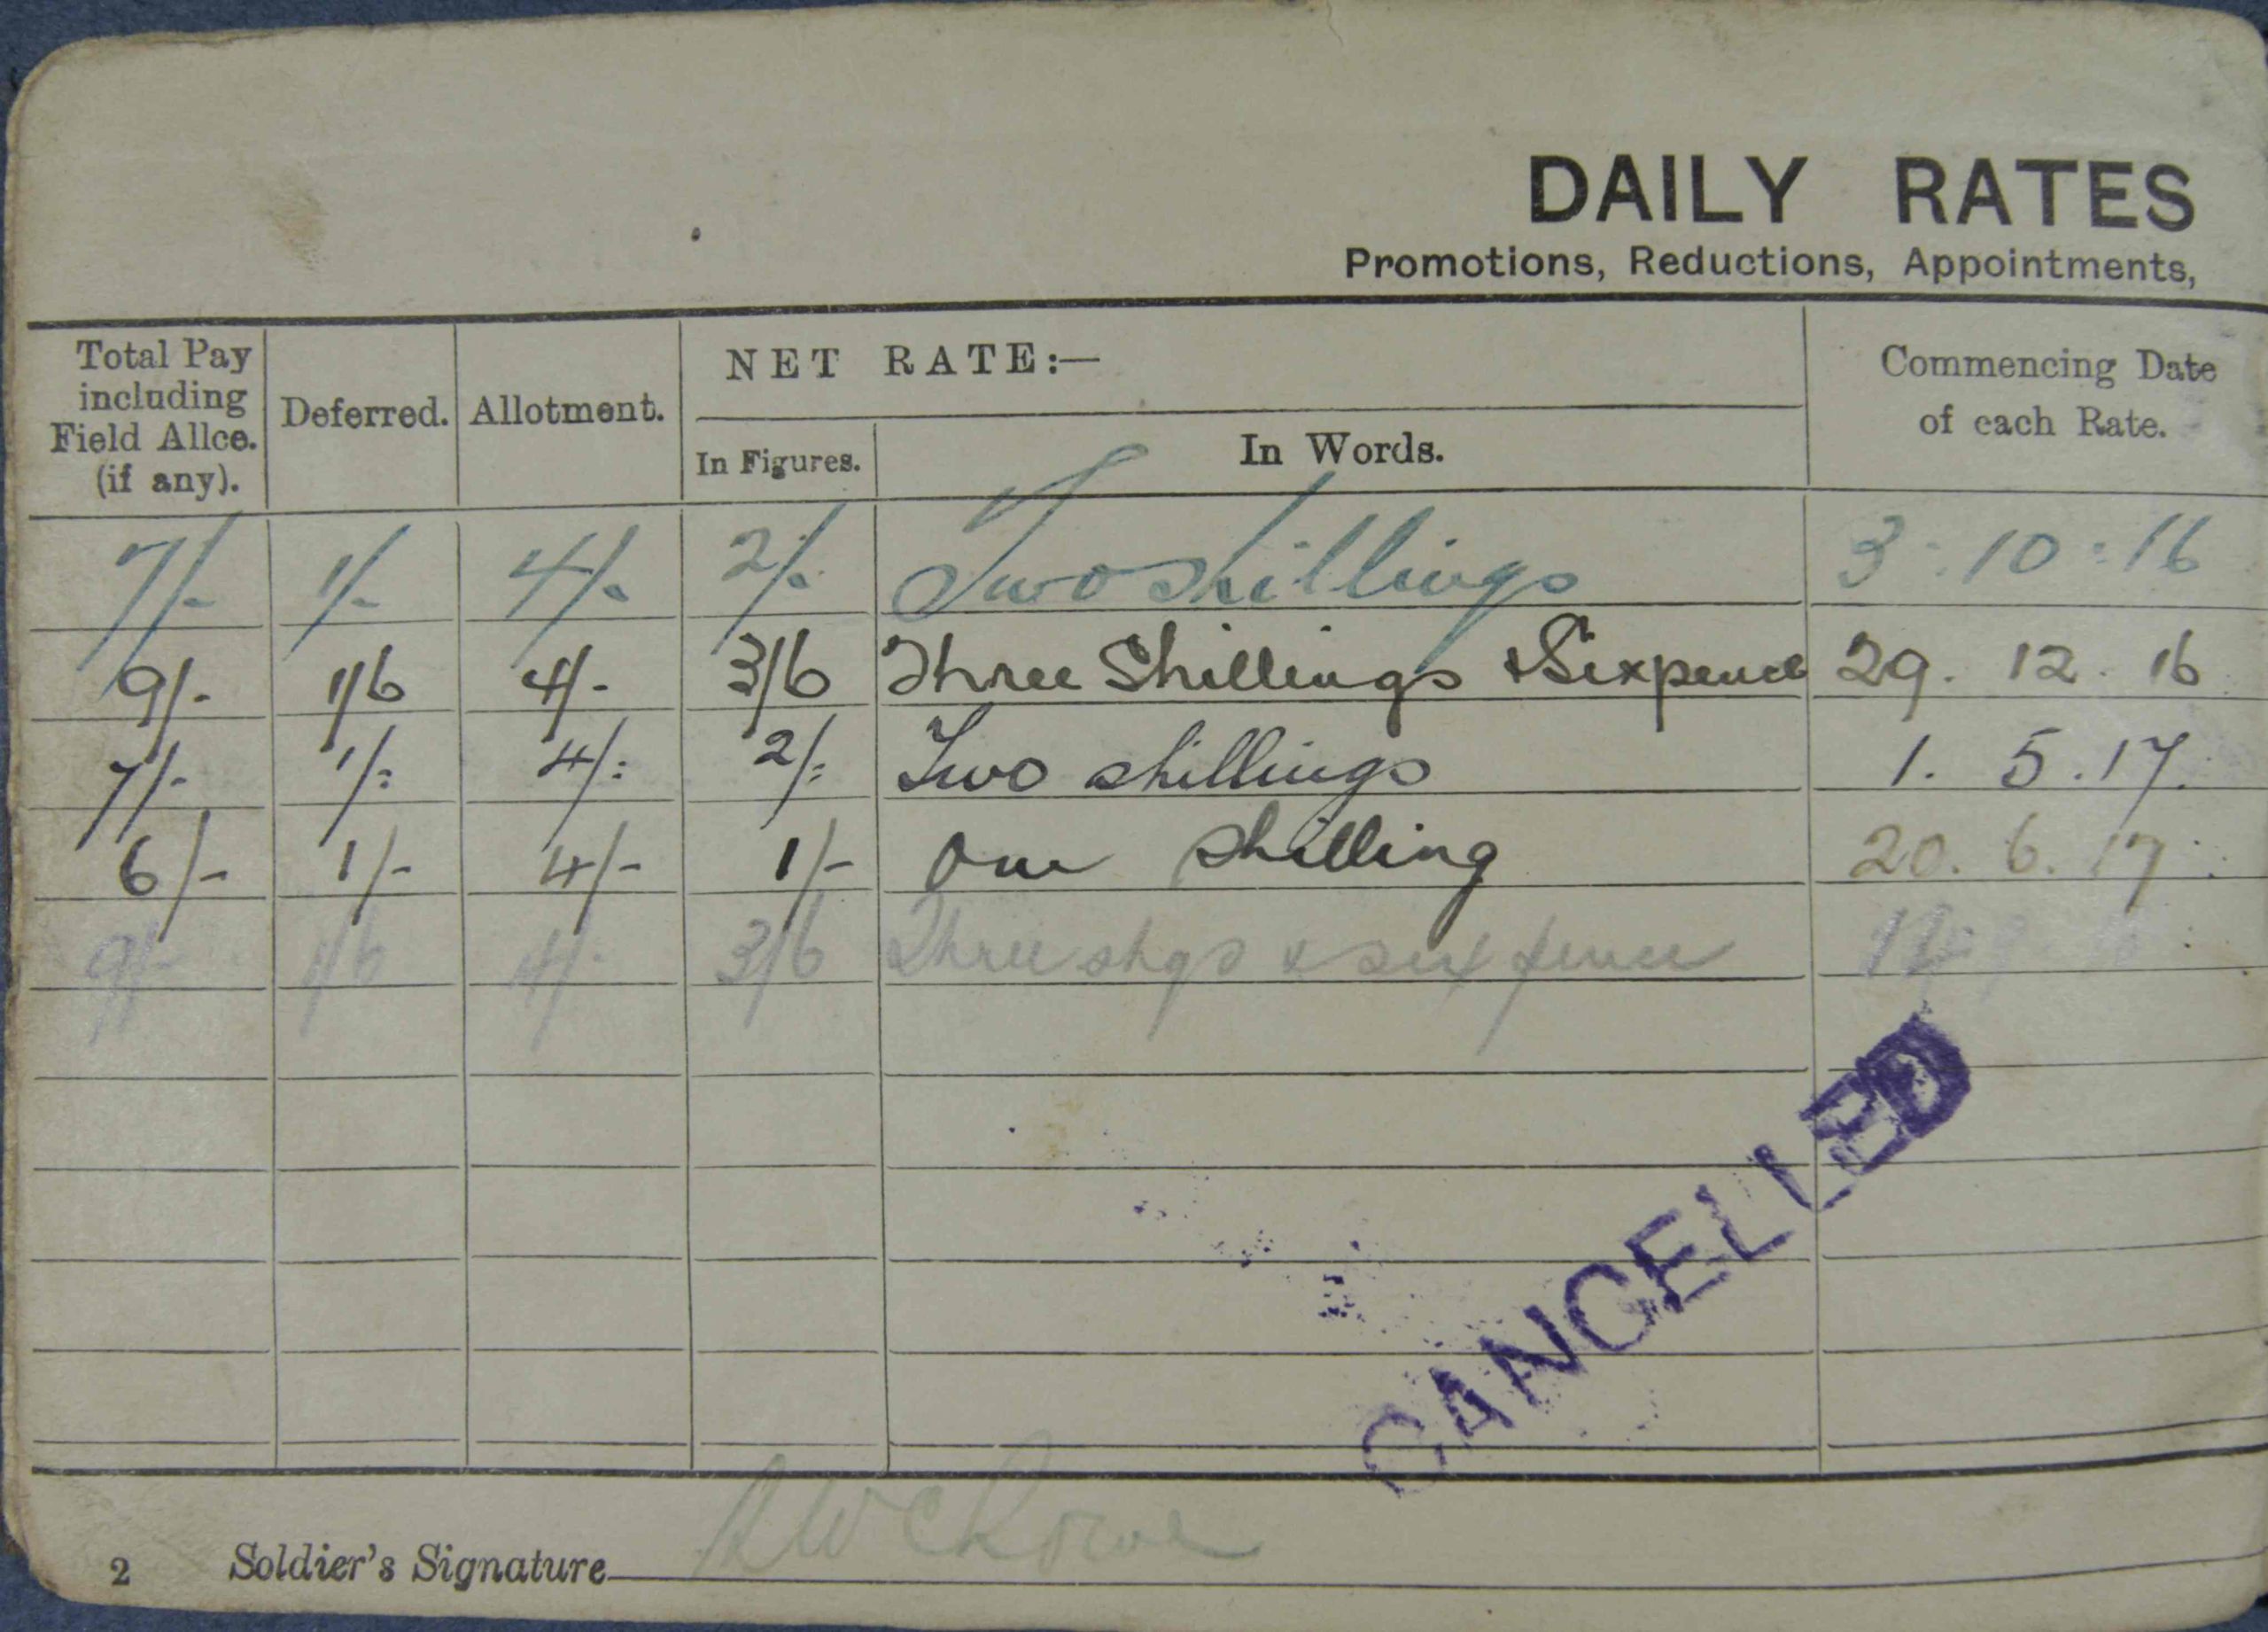 DAILY RATES
Promotions, Reductions, Appointments,
Total Pay including Field Allce. (if any). Deferred. Allotment. NET RATE:— In Figures. In Words. Commencing Date of each Rate.
7/- 1/- 4/- 2/- Two shillings 3:10:16
9/- 1/6 4/- 3/6 Three Shillings & Sixpence 29. 12. 16
7/- 1/= 4/= 2/= Two shillings 1. 5. 17.
6/- 1/- 4/- 1/- One shilling 20. 6. 17
9/- 1/6 4/- 3/6 Three shgs & six pence
CANCELLED
2 Soldier's Signature